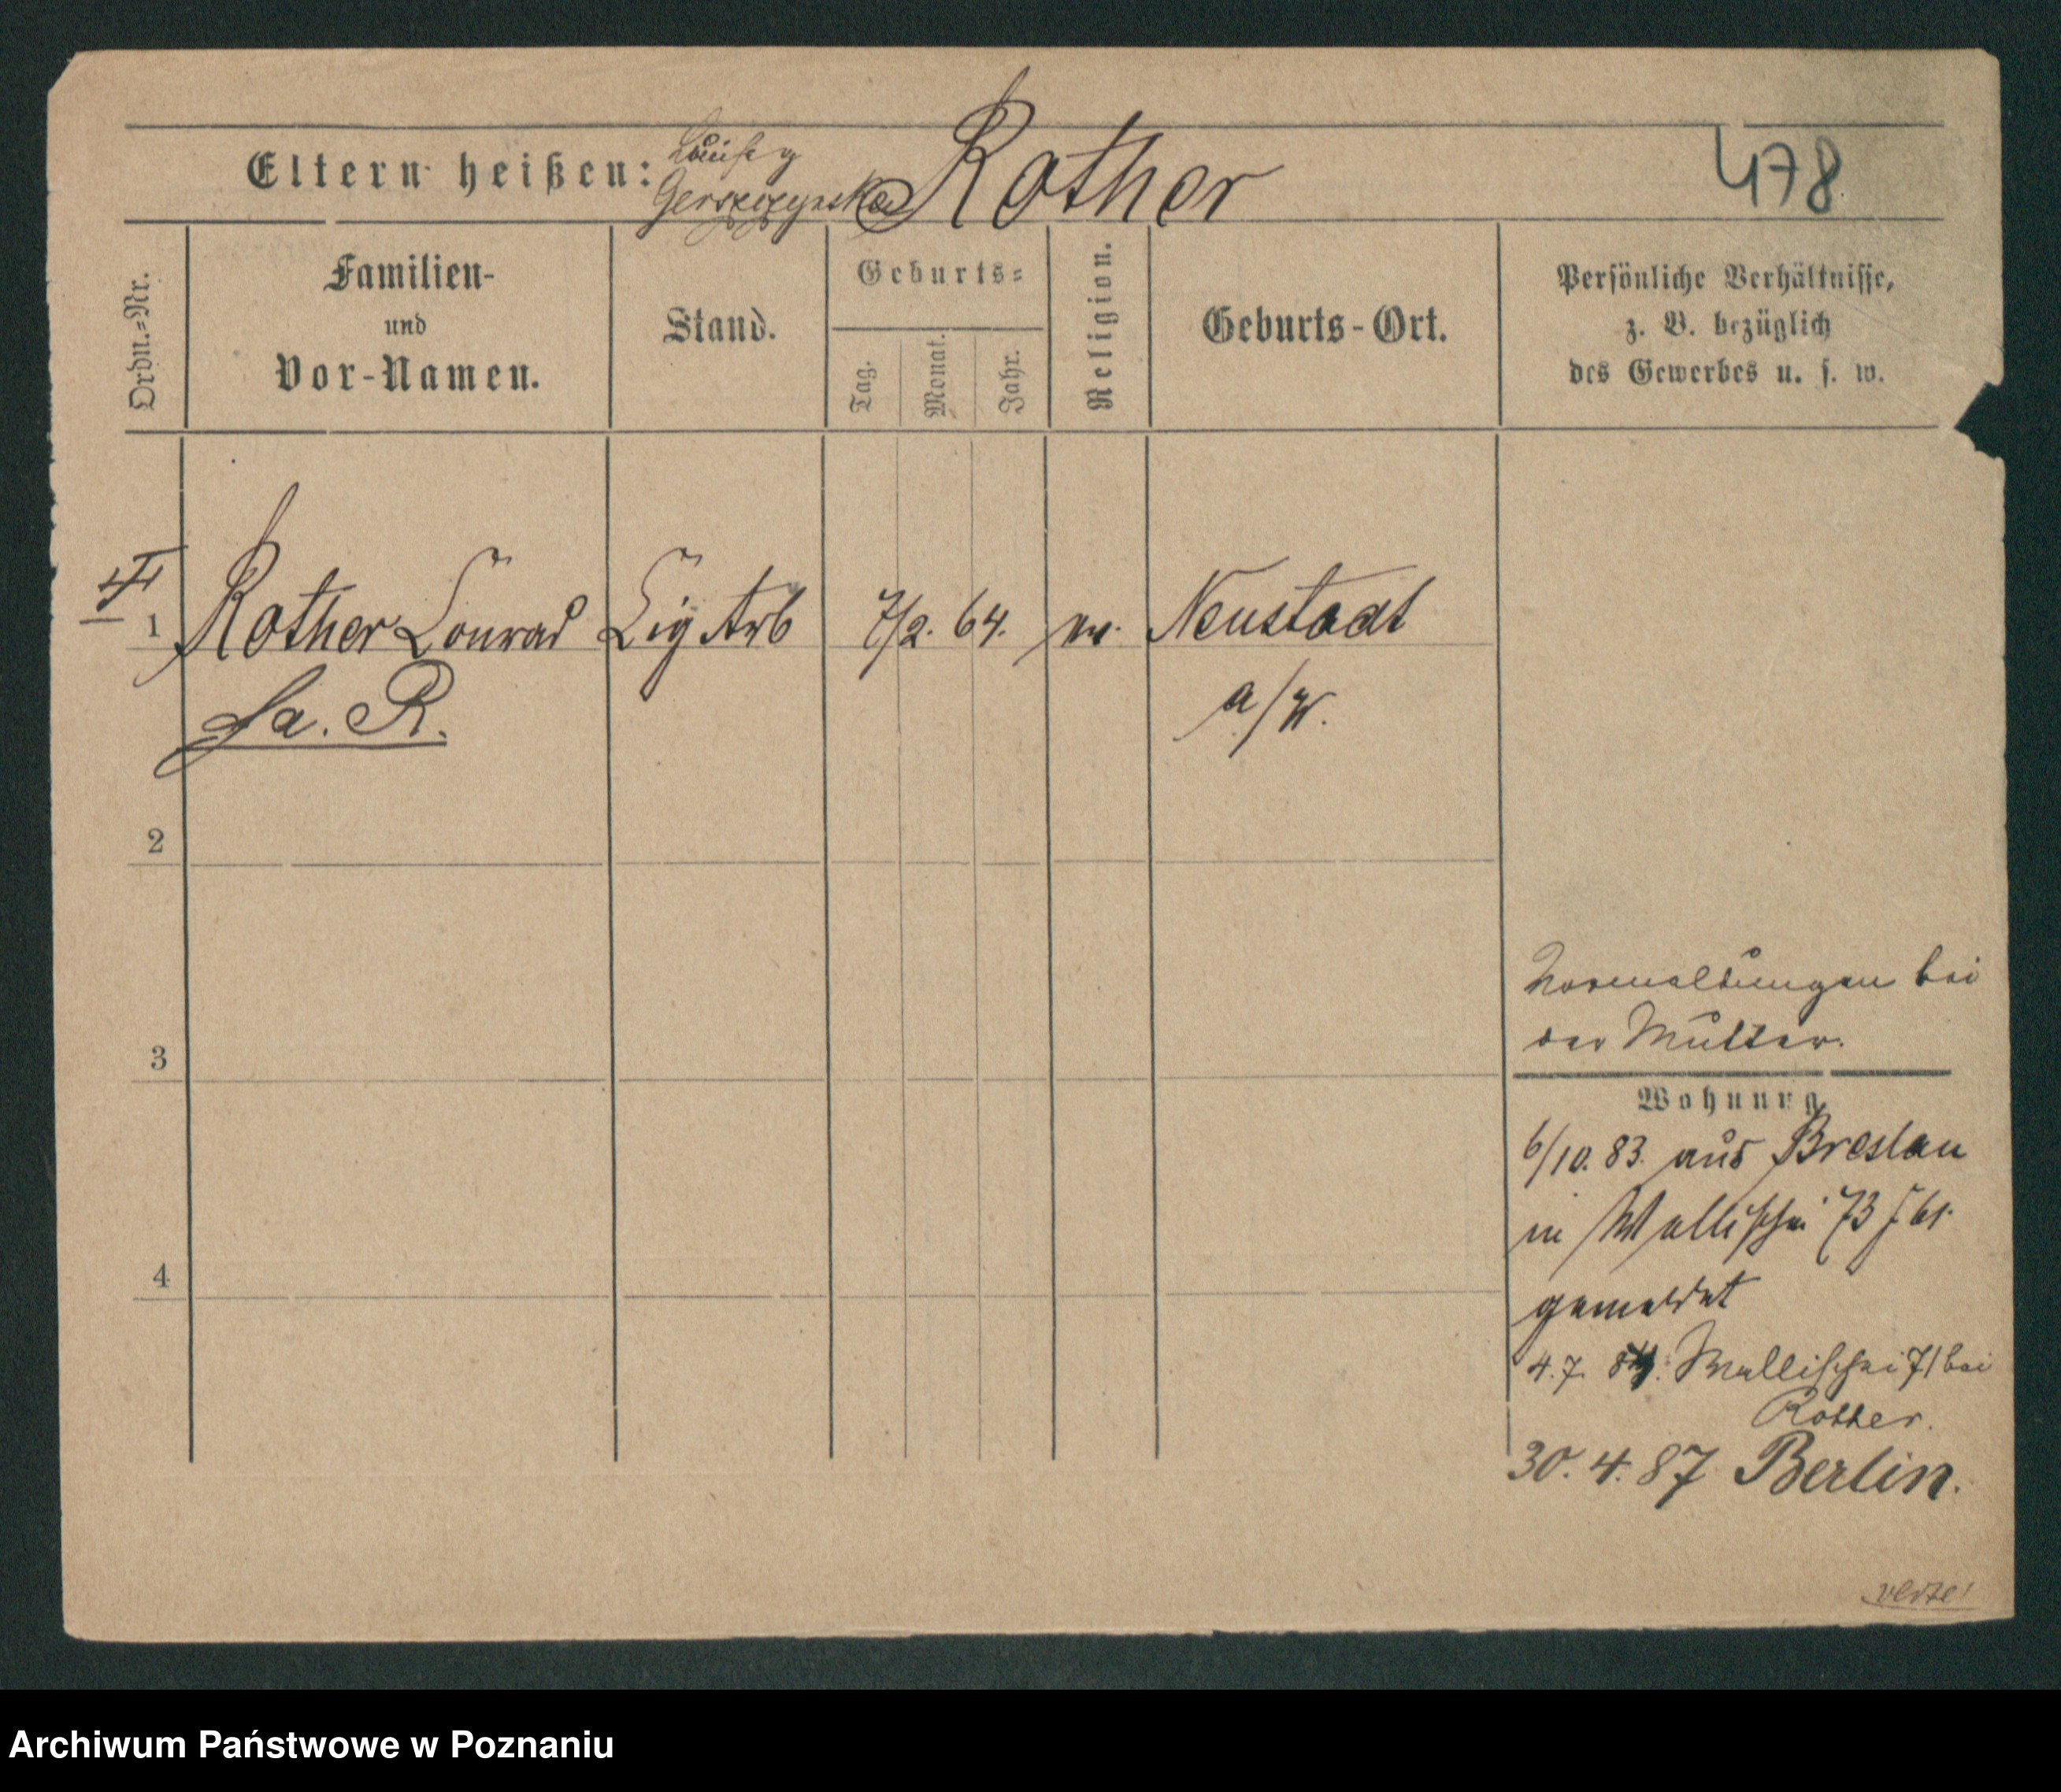 Eltern heißen:
Louise
Rother
478
Ordn.=Nr.
Familien-
und
Vor-Namen.
Stand.
Geburts=
Tag.
Monat.
Jahr.
Religion.
Geburts-Ort.
Persönliche Verhältnisse,
z. B. bezüglich
des Gewerbes u. s. w.
1 Rother Conrad Cig Arb 7/2. 64. ev. Neustadt
a/W.
2
3
4
Vormeldungen bei
der Mutter.
Wohnung
6/10. 83. aus Breslau
in Wallischei 73 j 61.
gemeldet
4.7. Wallischei 71 bei
Rother.
30. 4. 87 Berlin.
verte!
Archiwum Państwowe w Poznaniu